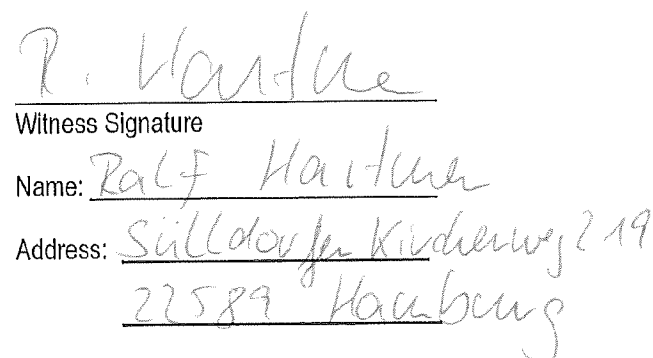 R.
Witness Signature
Name: Ralf
Address: Sülldorfer Kirchenweg 219
22589 Hamburg